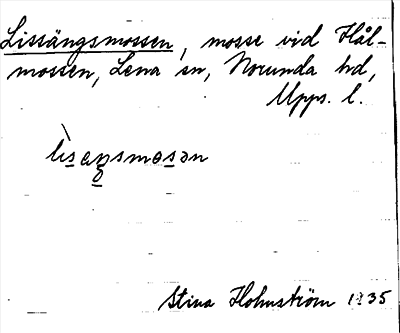 Lissängsmossen, mosse vid Hål-
mossen, Lena sn, Norunda hd,
Upps. l.
Stina Holmström 1935